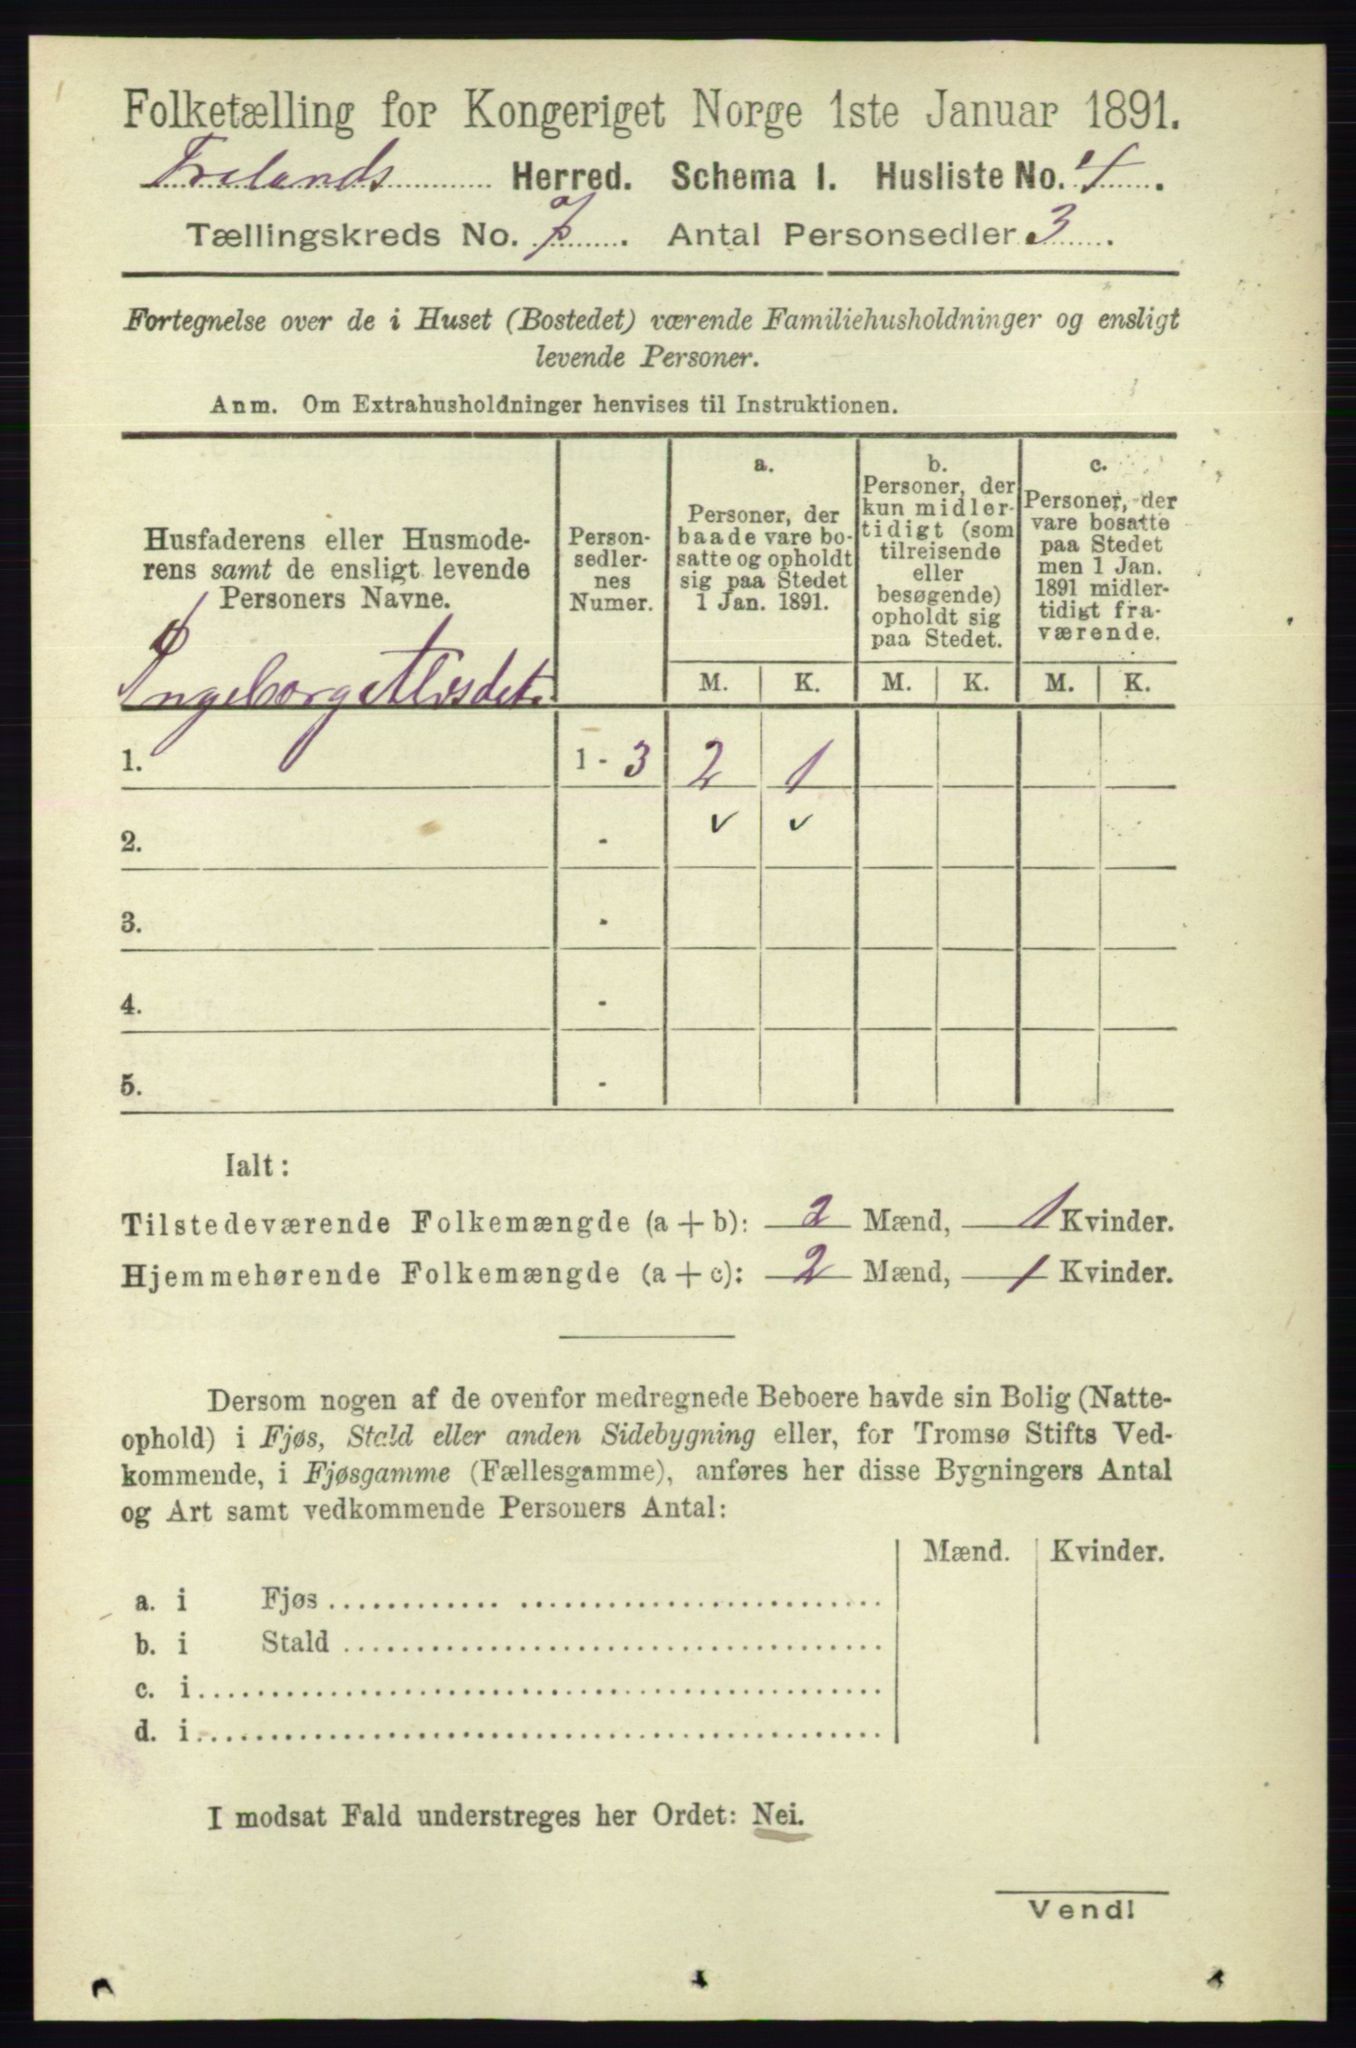 Folketælling for Kongeriget Norge 1ste Januar 1891.
Herred. Schema I. Husliste No. 4.
Tællingskreds No. 7. Antal Personsedler 3.
Fortegnelse over de i Huset (Bostedet) værende Familiehusholdninger og ensligt
levende Personer.
Anm. Om Extrahusholdninger henvises til Instruktionen.
Husfaderens eller Husmode-
rens samt de ensligt levende
Personers Navne.
Person-
sedler-
nes
Numer.
a.
Personer, der
baade vare bo-
satte og opholdt
sig paa Stedet
1 Jan. 1891.
b.
Personer, der
kun midler-
tidigt (som
tilreisende
eller
besøgende)
opholdt sig
paa Stedet.
c.
Personer, der
vare bosatte
paa Stedet
men 1 Jan.
1891 midler-
tidigt fra-
værende.
M. K. M. K. M. K.
Ingeborg
1. 1 - 3 2 1
2. - ✓ ✓
3. -
4. -
5. -
Ialt:
Tilstedeværende Folkemængde (a + b): 2 Mænd, 1 Kvinder.
Hjemmehørende Folkemængde (a + c): 2 Mænd, 1 Kvinder.
Dersom nogen af de ovenfor medregnede Beboere havde sin Bolig (Natte-
ophold) i Fjøs, Stald eller anden Sidebygning eller, for Tromsø Stifts Ved-
kommende, i Fjøsgamme (Fællesgamme), anføres her disse Bygningers Antal
og Art samt vedkommende Personers Antal:
Mænd. Kvinder.
a. i Fjøs
b. i Stald
c. i
d. i
I modsat Fald understreges her Ordet: Nei.
Vend!